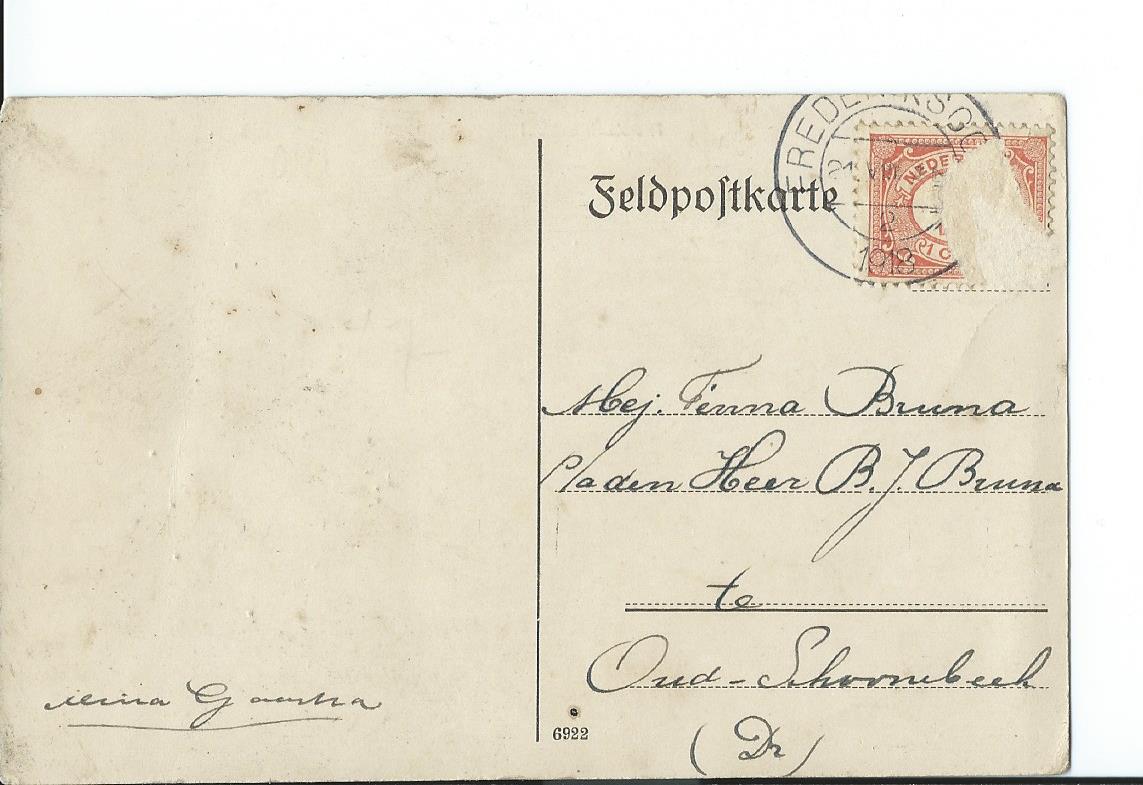 Feldpostkarte
FREDERIKSOO
21 VII
2
1918
NEDE
1 C
Mej. Fenna Bruna
p/a den Heer B. J. Bruna
te
Oud-Schoonebeek
(Dr)
Mina Gaastra
6922